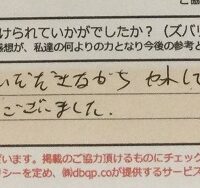 ご協
けられていかがでしたか?(ズバリ
感想が、私達の何よりの力となり今後の参考と
ございました.
います。掲載のご協力頂けるものにチェック
リシーを定め、㈱dbqp.coが提供するサービス